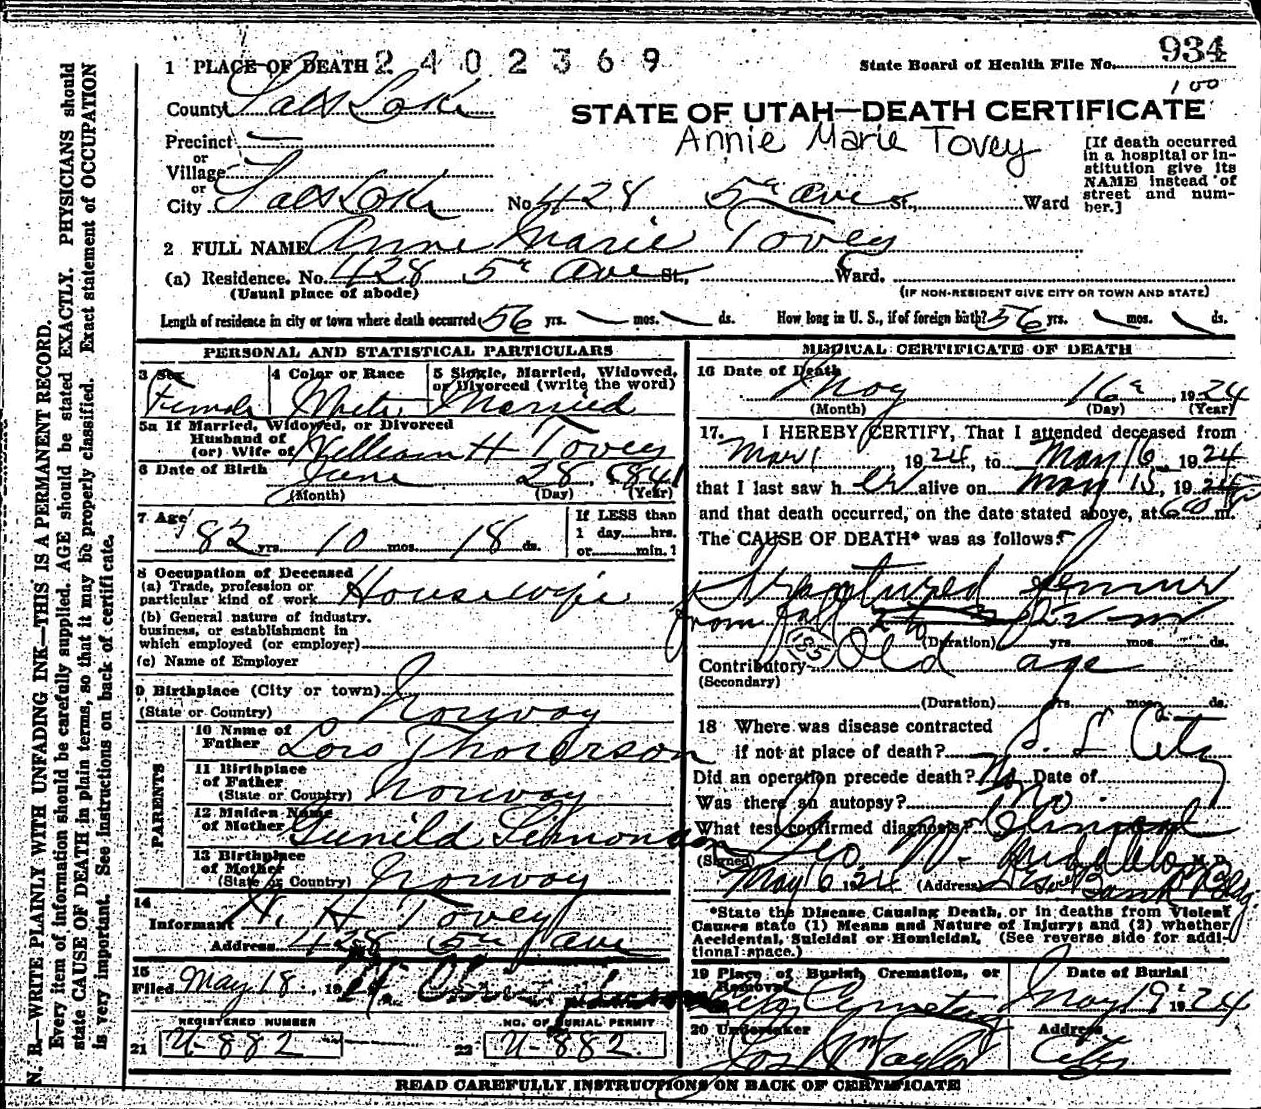 934
1 PLACE OF DEATH 2402369
State Board of Health File No.
100
County Salt Lake
STATE OF UTAH—DEATH CERTIFICATE
Annie Marie Tovey
Precinct —
or
Village
or
City Salt Lake No. 428 5th ave St., Ward
[If death occurred
in a hospital or in-
stitution give its
NAME instead of
street and num-
ber.]
2 FULL NAME Anne Marie Tovey
(a) Residence. No. 428 5th Ave St., Ward.
(Usual place of abode)
(IF NON-RESIDENT GIVE CITY OR TOWN AND STATE)
Length of residence in city or town where death occurred 56 yrs. — mos. — ds. How long in U. S., if of foreign birth? 56 yrs. — mos. — ds.
PERSONAL AND STATISTICAL PARTICULARS
3 Sex
Female
4 Color or Race
White
5 Single, Married, Widowed,
or Divorced (write the word)
Married
5a If Married, Widowed, or Divorced
Husband of
(or) Wife of William H Tovey
6 Date of Birth
June 28, 1841
(Month) (Day) (Year)
7 Age
82 yrs. 10 mos. 18 ds.
If LESS than
1 day......hrs.
or......min.?
8 Occupation of Deceased
(a) Trade, profession or
particular kind of work Housewife
(b) General nature of industry,
business, or establishment in
which employed (or employer)
(c) Name of Employer
9 Birthplace (City or town)
(State or Country) Norway
PARENTS
10 Name of
Father Lars Thorerson
11 Birthplace
of Father
(State or Country) Norway
12 Maiden Name
of Mother Gunild Simonson
13 Birthplace
of Mother
(State or Country) Norway
14
Informant H. H Tovey
Address 428 5th Ave
15
Filed May 18, 1924
REGISTERED NUMBER
21 U-882
NO. OF BURIAL PERMIT
22 U-882
MEDICAL CERTIFICATE OF DEATH
16 Date of Death
May 16th, 1924
(Month) (Day) (Year)
17. I HEREBY CERTIFY, That I attended deceased from
Mar 1, 1924, to May 16, 1924
that I last saw her alive on May 15, 1924
and that death occurred, on the date stated above, at 6 m.
The CAUSE OF DEATH* was as follows:
Fractured femur
from fall
185
(Duration) yrs. mos. ds.
Contributory Old age
(Secondary)
(Duration) yrs. mos. ds.
18 Where was disease contracted
if not at place of death? S. L City
Did an operation precede death? No Date of
Was there an autopsy? No.
What test confirmed diagnosis? Clinical
(Signed) Geo. W. Middleton, M. D.
May 16 1924 (Address) Deseret Bank Bldg
*State the Disease Causing Death, or in deaths from Violent
Causes state (1) Means and Nature of Injury; and (2) whether
Accidental, Suicidal or Homicidal. (See reverse side for addi-
tional space.)
19 Place of Burial, Cremation, or
Removal
City Cemetery
Date of Burial
May 19, 1924
20 Undertaker
Jos Wm Taylor
Address
City
READ CAREFULLY INSTRUCTIONS ON BACK OF CERTIFICATE
N. B.—WRITE PLAINLY WITH UNFADING INK—THIS IS A PERMANENT RECORD.
Every item of information should be carefully supplied. AGE should be stated EXACTLY. PHYSICIANS should
state CAUSE OF DEATH in plain terms, so that it may be properly classified. Exact statement of OCCUPATION
is very important. See instructions on back of certificate.